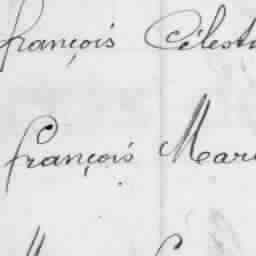 françois Célest
françois Mar